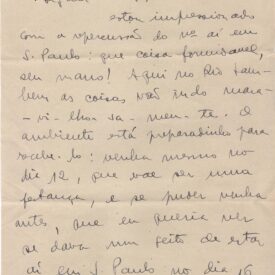 estou impressionado
com a repercussão do nº aí em
S. Paulo: que coisa formidavel,
seu mano! Aqui no Rio tam-
bem as coisas vão indo mara-
-vi-lho-sa-men-te. O
ambiente está preparadinho para
recebe-lo: venha mesmo no
dia 12, que vae ser uma
festança, e se puder venha
antes, que eu queria ver
se dava um geito de estar
aí em S. Paulo no dia 16